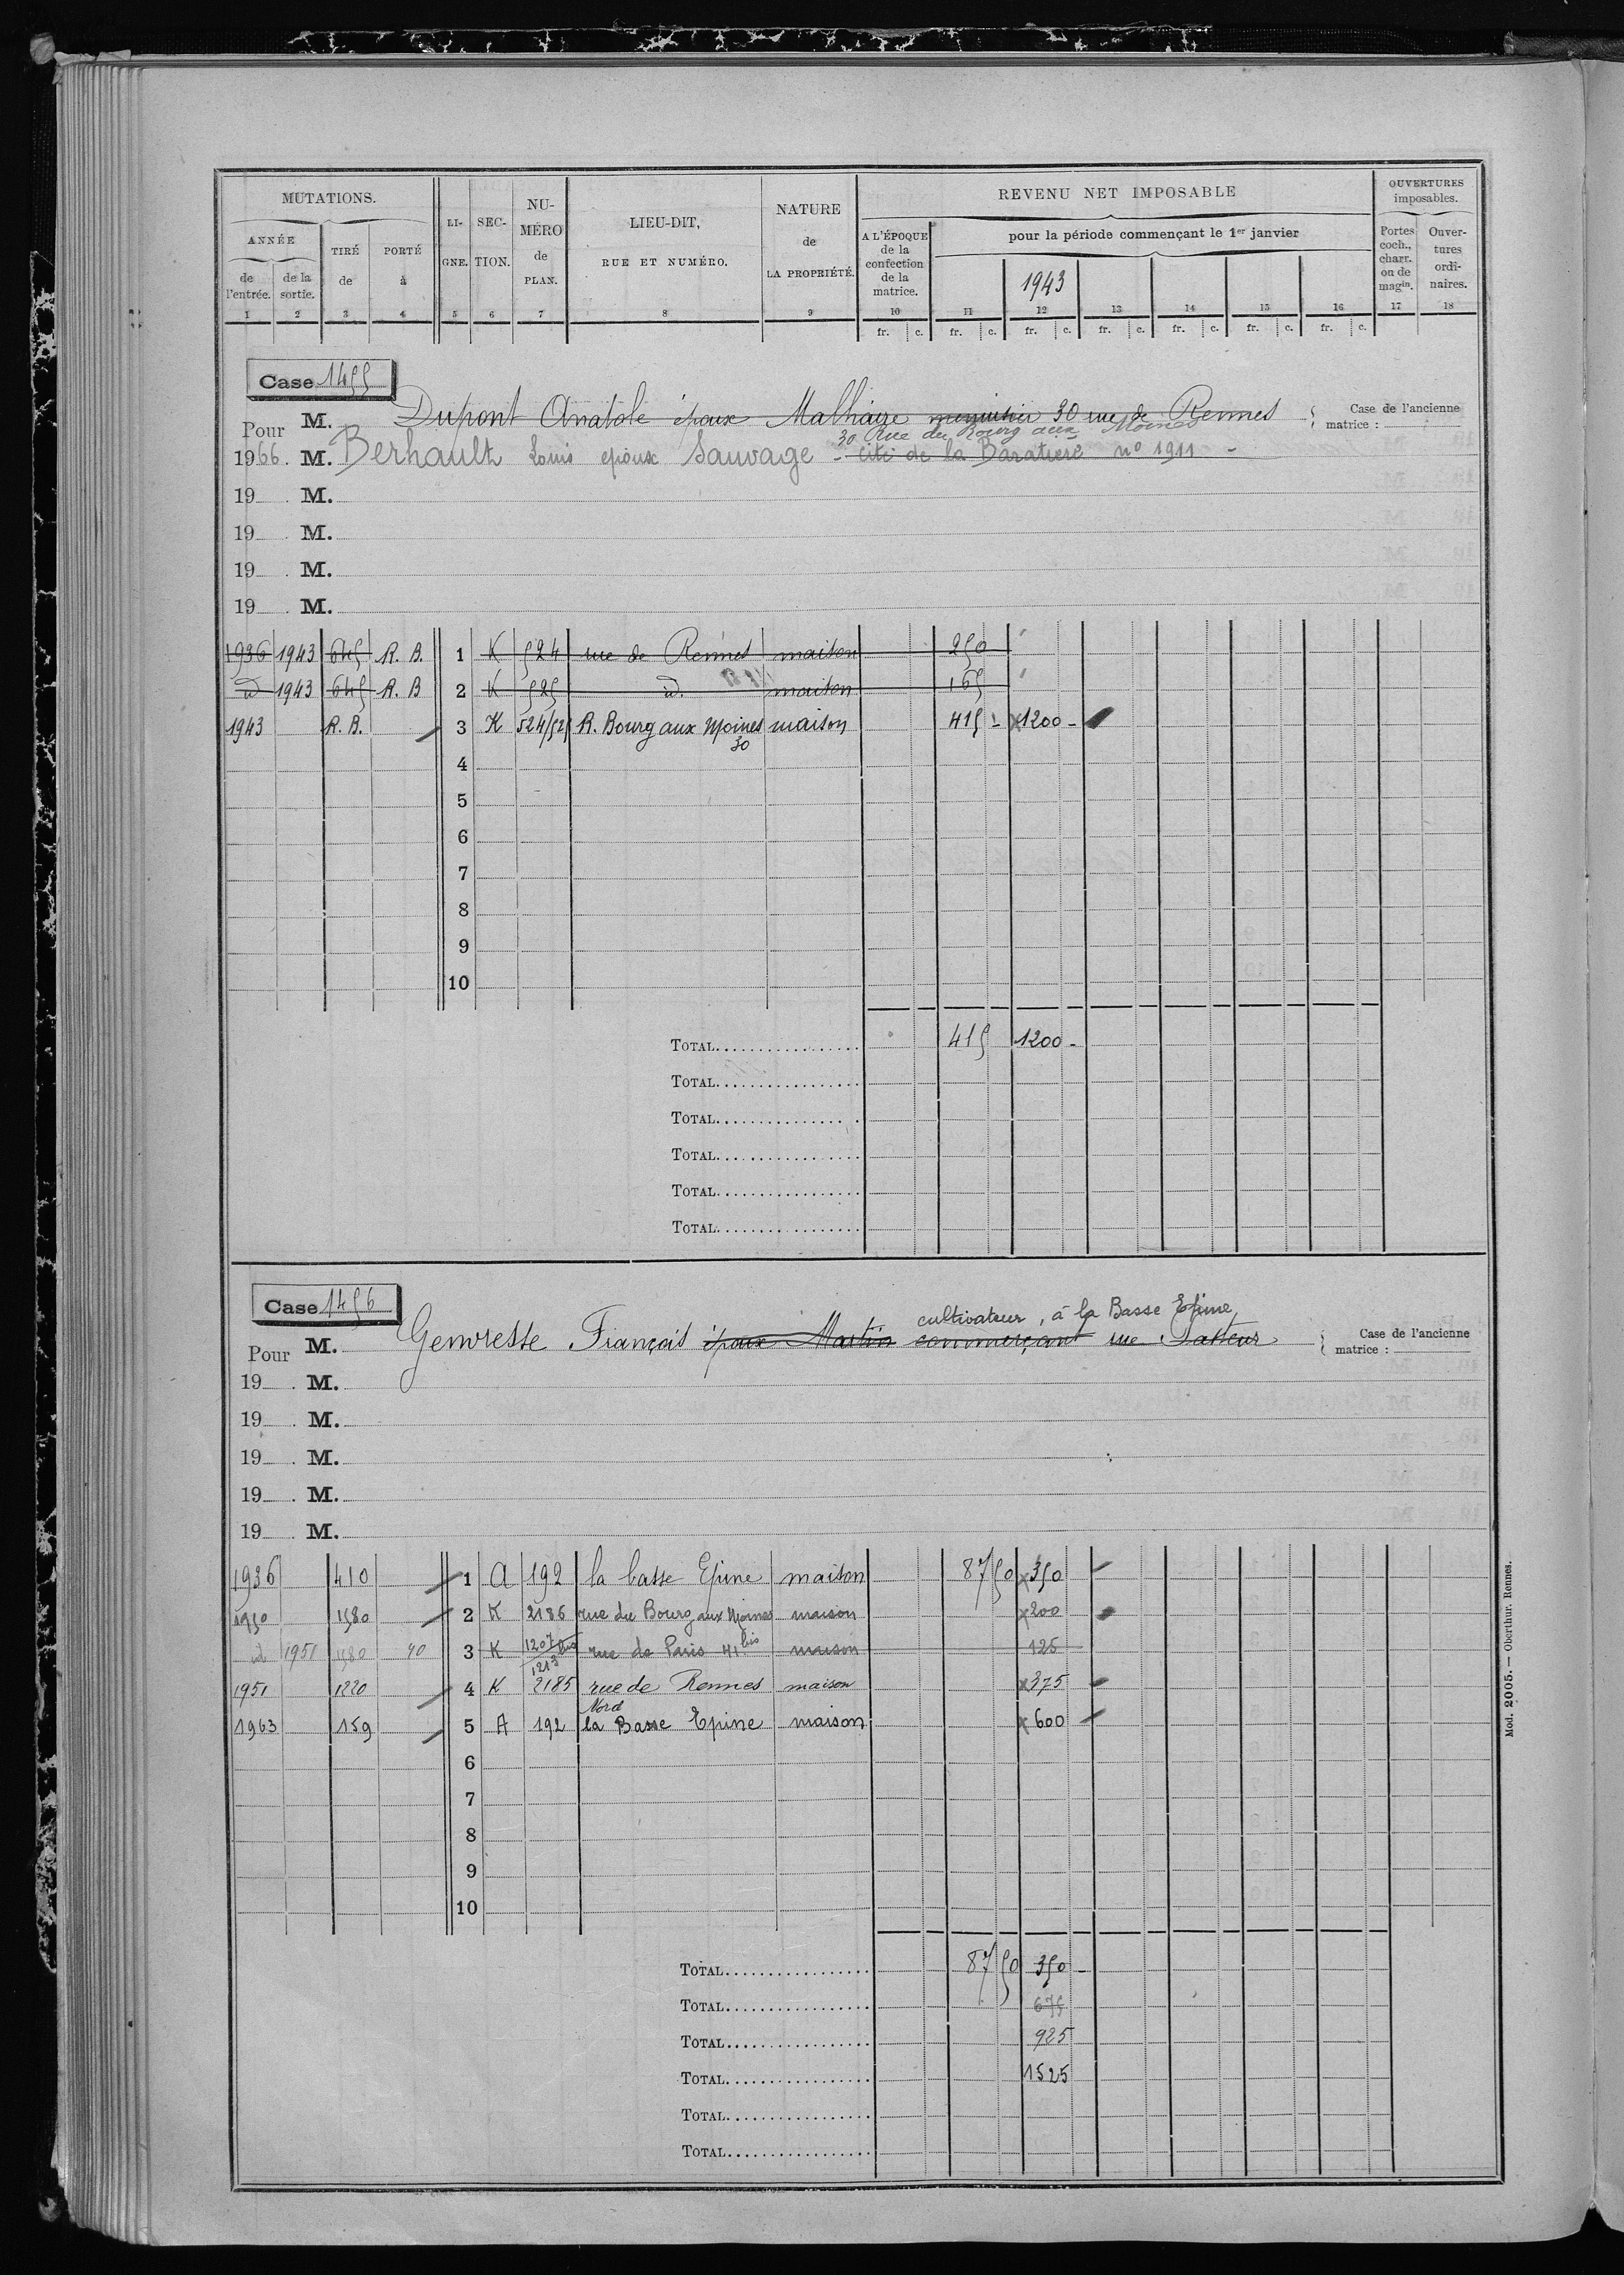 MUTATIONS.
ANNÉE
de l'entrée.
de la sortie.
TIRÉ de
PORTÉ à
LI-GNE.
SEC-TION.
NU-MÉRO de PLAN.
LIEU-DIT, RUE ET NUMÉRO.
NATURE de LA PROPRIÉTÉ.
REVENU NET IMPOSABLE
A L'ÉPOQUE de la confection de la matrice.
pour la période commençant le 1er janvier
1943
OUVERTURES imposables.
Portes coch., charr. ou de magin.
Ouver-tures ordi-naires.
1 2 3 4 5 6 7 8 9 10 11 12 13 14 15 16 17 18
fr. c. fr. c. fr. c. fr. c. fr. c. fr. c. fr. c.
Case 1455
Pour M. Dupont Anatole époux Malhiaire menuisier 30 rue de Rennes
Case de l'ancienne matrice :
30 Rue du Bourg aux Moines
1966. M. Berhault Louis époux Sauvage - cité de la Baratière n° 1911 -
19 . M.
19 . M.
19 . M.
19 . M.
1936 1943 645 R. B. 1 K 524 rue de Rennes maison 250
id 1943 645 R. B 2 K 525 id. maison 165
1943 R. B. 3 K 524/525 R. Bourg aux Moines 30 maison 415 - x1200 -
4
5
6
7
8
9
10
TOTAL 415 1200 -
TOTAL
TOTAL
TOTAL
TOTAL
TOTAL
Case 1456
cultivateur, à la Basse Epine
Pour M. Genvresse Français époux Martin commerçant rue Pasteur
Case de l'ancienne matrice :
19 . M.
19 . M.
19 . M.
19 . M.
19 . M.
1936 410 1 A 192 la basse Epine maison 87 50 x350
1950 1580 2 K 2186 rue du Bourg aux Moines maison x200
id 1951 1580 40 3 K 1207 bis/1213 rue de Paris 41 bis maison 125
1951 1220 4 K 2185 rue de Rennes maison x375
Nord
1963 159 5 A 192 la Basse Epine maison x600
6
7
8
9
10
TOTAL 87 50 350 -
TOTAL 675
TOTAL 925
TOTAL 1525
TOTAL
TOTAL
Mod. 2005. — Oberthur. Rennes.